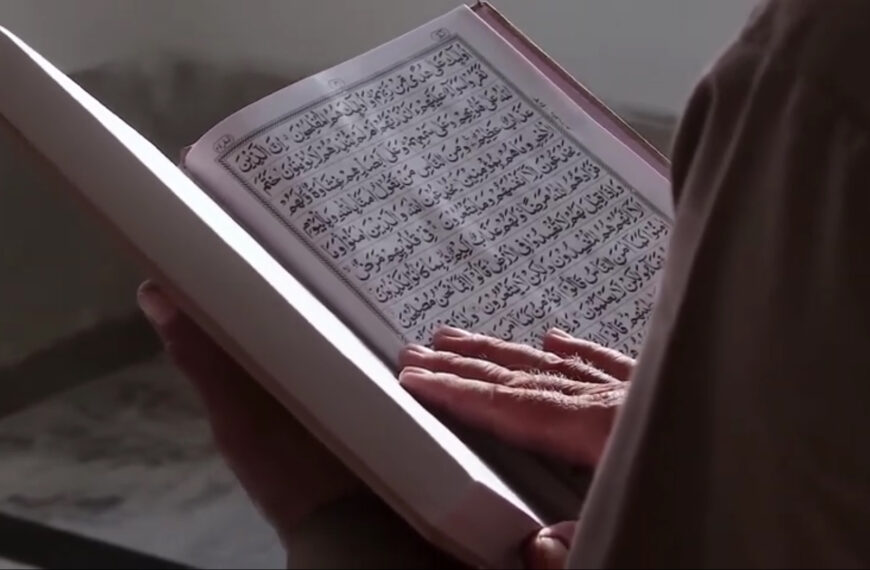 أُولَٰئِكَ عَلَىٰ هُدًى مِّن رَّبِّهِمْ وَأُولَٰئِكَ هُمُ الْمُفْلِحُونَ إِنَّ الَّذِينَ
كَفَرُوا سَوَاءٌ عَلَيْهِمْ أَأَنذَرْتَهُمْ أَمْ لَمْ تُنذِرْهُمْ لَا يُؤْمِنُونَ خَتَمَ
اللَّهُ عَلَىٰ قُلُوبِهِمْ وَعَلَىٰ سَمْعِهِمْ وَعَلَىٰ أَبْصَارِهِمْ غِشَاوَةٌ وَلَهُمْ
عَذَابٌ عَظِيمٌ وَمِنَ النَّاسِ مَن يَقُولُ آمَنَّا بِاللَّهِ وَبِالْيَوْمِ
الْآخِرِ وَمَا هُم بِمُؤْمِنِينَ يُخَادِعُونَ اللَّهَ وَالَّذِينَ آمَنُوا وَ
مَا يَخْدَعُونَ إِلَّا أَنفُسَهُمْ وَمَا يَشْعُرُونَ فِي قُلُوبِهِم مَّرَضٌ
فَزَادَهُمُ اللَّهُ مَرَضًا وَلَهُمْ عَذَابٌ أَلِيمٌ بِمَا كَانُوا يَكْذِبُونَ
وَإِذَا قِيلَ لَهُمْ لَا تُفْسِدُوا فِي الْأَرْضِ قَالُوا إِنَّمَا نَحْنُ مُصْلِحُونَ
أَلَا إِنَّهُمْ هُمُ الْمُفْسِدُونَ وَلَٰكِن لَّا يَشْعُرُونَ وَإِذَا
آمِنُوا كَمَا آمَنَ النَّاسُ قَالُوا أَنُؤْمِنُ كَمَا آمَنَ
وَلَٰكِن لَّا يَعْلَمُونَ
قَالُوا